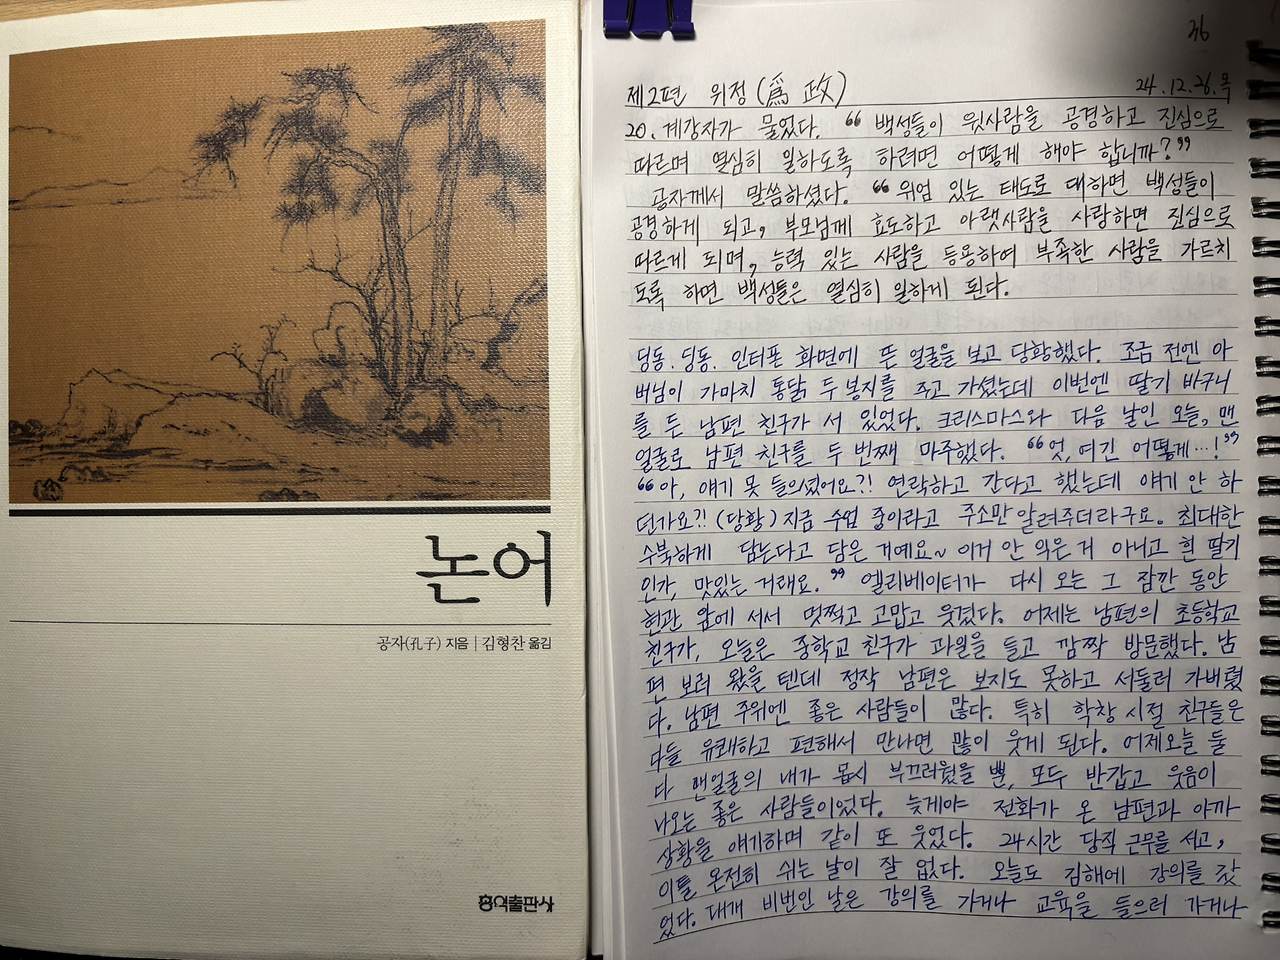 논어
공자(孔子) 지음 | 김형찬 옮김
홍익출판사
36
제2편 위정(爲政) 24.12.26.목
20. 계강자가 물었다. "백성들이 윗사람을 공경하고 진심으로
따르며 열심히 일하도록 하려면 어떻게 해야 합니까?"
공자께서 말씀하셨다. "위엄 있는 태도로 대하면 백성들이
공경하게 되고, 부모님께 효도하고 아랫사람을 사랑하면 진심으로
따르게 되며, 능력 있는 사람을 등용하여 부족한 사람을 가르치
도록 하면 백성들은 열심히 일하게 된다.
딩동. 딩동. 인터폰 화면에 뜬 얼굴을 보고 당황했다. 조금 전엔 아
버님이 가마치 통닭 두 봉지를 주고 가셨는데 이번엔 딸기 바구니
를 든 남편 친구가 서 있었다. 크리스마스와 다음 날인 오늘, 맨
얼굴로 남편 친구를 두 번째 마주했다. "엇, 여긴 어떻게…!"
"아, 얘기 못 들으셨어요?! 연락하고 간다고 했는데 얘기 안 하
던가요?! (당황) 지금 수업 중이라고 주소만 알려주더라구요. 최대한
수북하게 담는다고 담은 거예요~ 이거 안 익은 거 아니고 흰 딸기
인가, 맛있는 거래요." 엘리베이터가 다시 오는 그 잠깐 동안
현관 앞에 서서 멋쩍고 고맙고 웃겼다. 어제는 남편의 초등학교
친구가, 오늘은 중학교 친구가 과일을 들고 깜짝 방문했다. 남
편 보러 왔을 텐데 정작 남편은 보지도 못하고 서둘러 가버렸
다. 남편 주위엔 좋은 사람들이 많다. 특히 학창 시절 친구들은
다들 유쾌하고 편해서 만나면 많이 웃게 된다. 어제오늘 둘
다 맨얼굴의 내가 몹시 부끄러웠을 뿐, 모두 반갑고 웃음이
나오는 좋은 사람들이었다. 늦게야 전화가 온 남편과 아까
상황을 얘기하며 같이 또 웃었다. 24시간 당직 근무를 서고,
이틀 온전히 쉬는 날이 잘 없다. 오늘도 김해에 강의를 갔
었다. 대개 비번인 날은 강의를 가거나 교육을 들으러 가거나